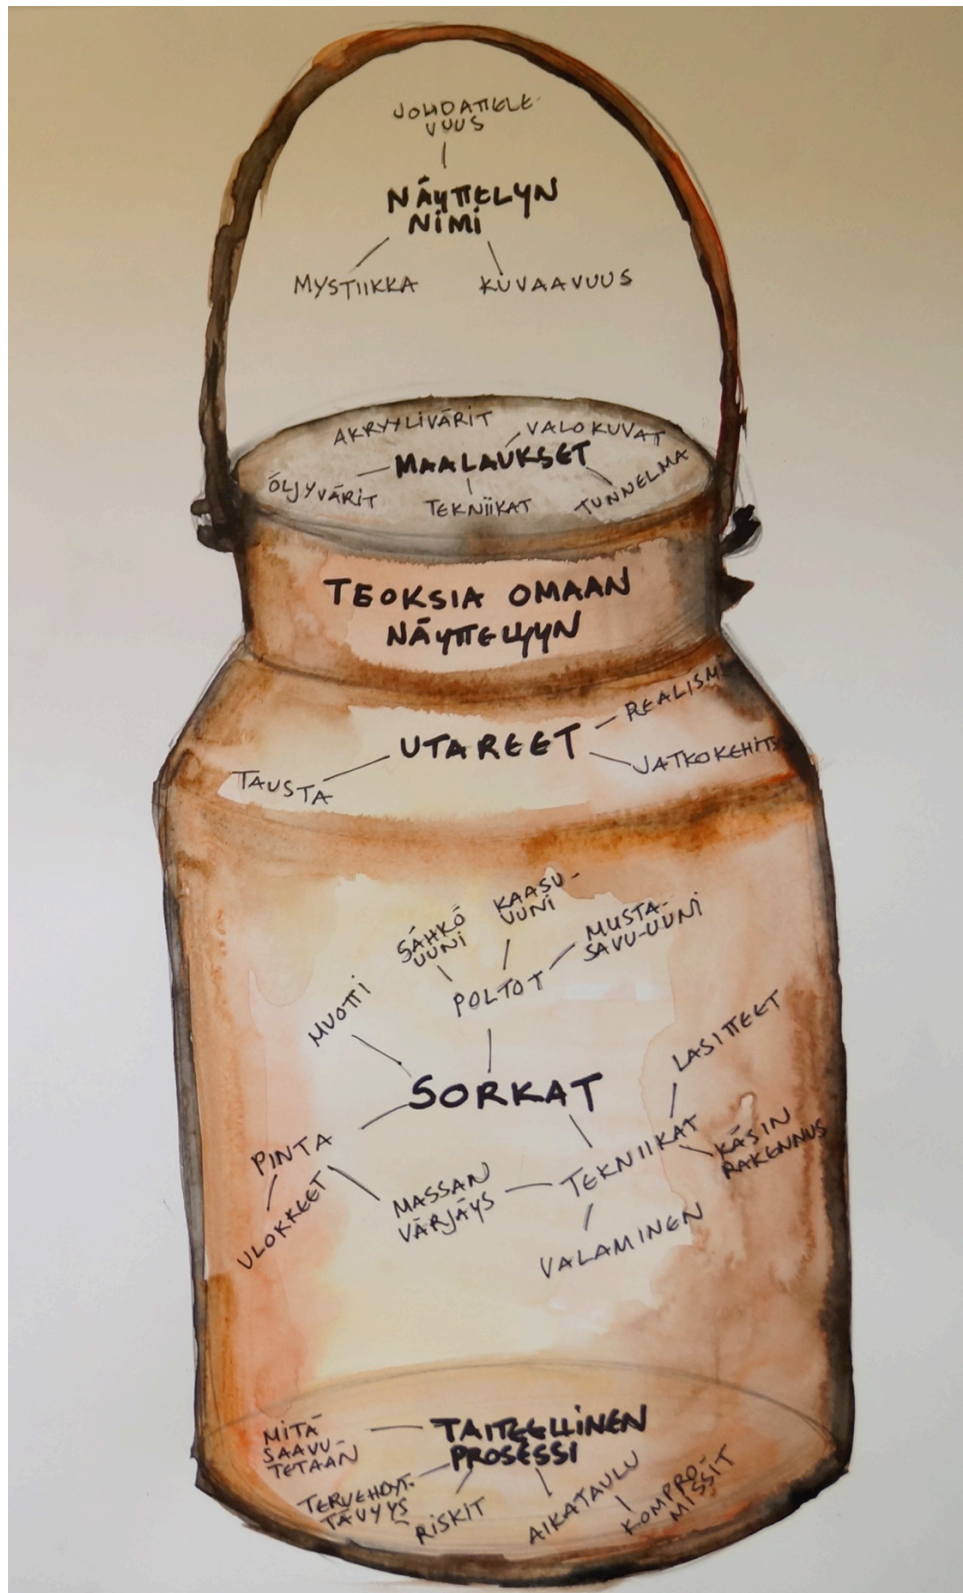 JOHDATTELE-
VUUS
NÄYTTELYN
NIMI
MYSTIIKKA
KUVAAVUUS
AKRYYLIVÄRIT
VALOKUVAT
MAALAUKSET
ÖLJYVÄRIT
TEKNIIKAT
TUNNELMA
TEOKSIA OMAAN
NÄYTTELYYN
REALISMI
UTAREET
JATKOKEHITYS
TAUSTA
SÄHKÖ
UUNI
KAASU-
UUNI
MUSTA-
SAVU-UUNI
MUOTTI
POLTOT
LASITTEET
SORKAT
PINTA
TEKNIIKAT
KÄSIN
RAKENNUS
ULOKKEET
MASSAN
VÄRJÄYS
VALAMINEN
MITÄ
SAAVU-
TETAAN
TAITEELLINEN
PROSESSI
TERVEHDYT-
TÄVYYS
RISKIT
AIKATAULU
KOMPRO-
MISSIT